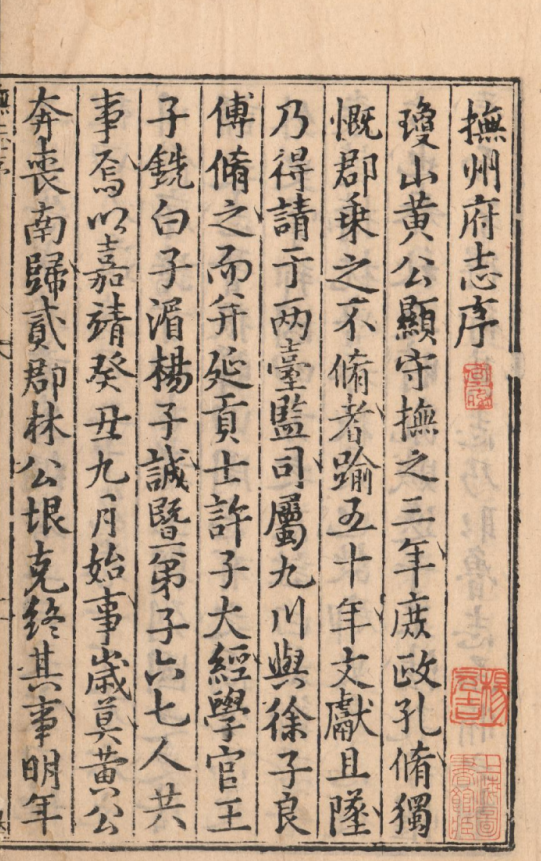 撫州府志序
瓊山黄公顯守撫之三年庶政孔脩獨
慨郡乗之不脩者踰五十年文獻且墜
乃得請于两臺監司屬九川與徐子良
傅脩之而并延貢士許子大經學官王
子銑白子湄楊子誠暨弟子六七人共
事焉以嘉靖癸丑九月始事歲莫黄公
奔喪南歸貳郡林公垠克終其事明年